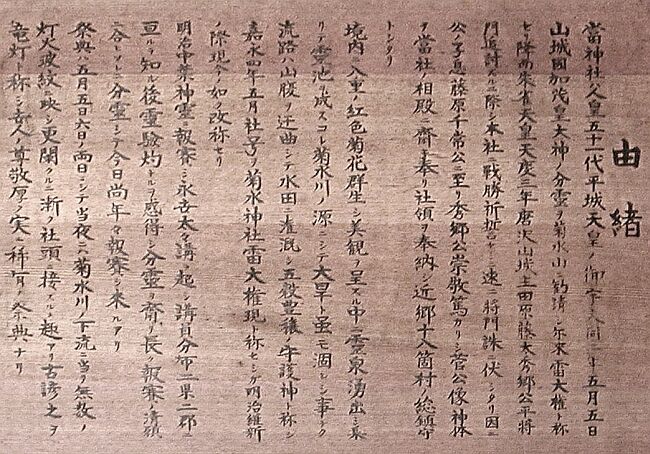 由緒
當神社ハ人皇五十一代平城天皇ノ御宇大同二年五月五日
山城國加茂皇大神ノ分霊ヲ菊水山ニ勧請シ尓来雷大権ト称
セリ降而朱雀天皇天慶三年唐沢山城主田原藤太秀郷公平将
門追討スルニ際シ本社ニ戦勝祈誓シ速ニ将門誅ニ伏シタリ因テ
公ノ子息藤原千常公ニ至リ秀郷公崇敬篤カリシ菅公像神体
ヲ當社ノ相殿ニ齋キ奉リ社領ヲ奉納シ近郷十八箇村ノ総鎮守
トシタリ
境内ニ八重ノ紅色菊花群生シ美観ヲ呈スル中ニ霊泉湧出シ集
リテ霊池ヲ成スコレ菊水川ノ源ニシテ大旱ト虽モ涸レシ事ナク
流路ハ山腹ヲ迂曲シテ水田ニ潅漑シ五穀豊穣ノ守護神ト称シ
嘉永四年五月社号ヲ菊水神社雷大権現ト称セシガ明治維新
ノ際現今ノ如ク改称セリ
明治中葉神霊ノ報賽ニ永吉太々講ヲ起シ講員分布二県二郡ニ
亘ル知ル後霊験灼トルヲ感得シ分霊ヲ齋ヲ長ク報賽ノ清積
ニ合ヒシニ分霊シテ今日尚年々報賽ニ来ルアリ
祭典ハ五月五日六日ノ両日ニシテ当夜ニ菊水川ノ下流ニ当リ無数ノ
灯火波紋ニ映シ更闌クルニ漸ク社頭ニ接スルノ趣アリ古諺之ヲ
竜灯ト称シ吾人ノ尊敬厚ク実ニ稀有ノ祭典ナリ